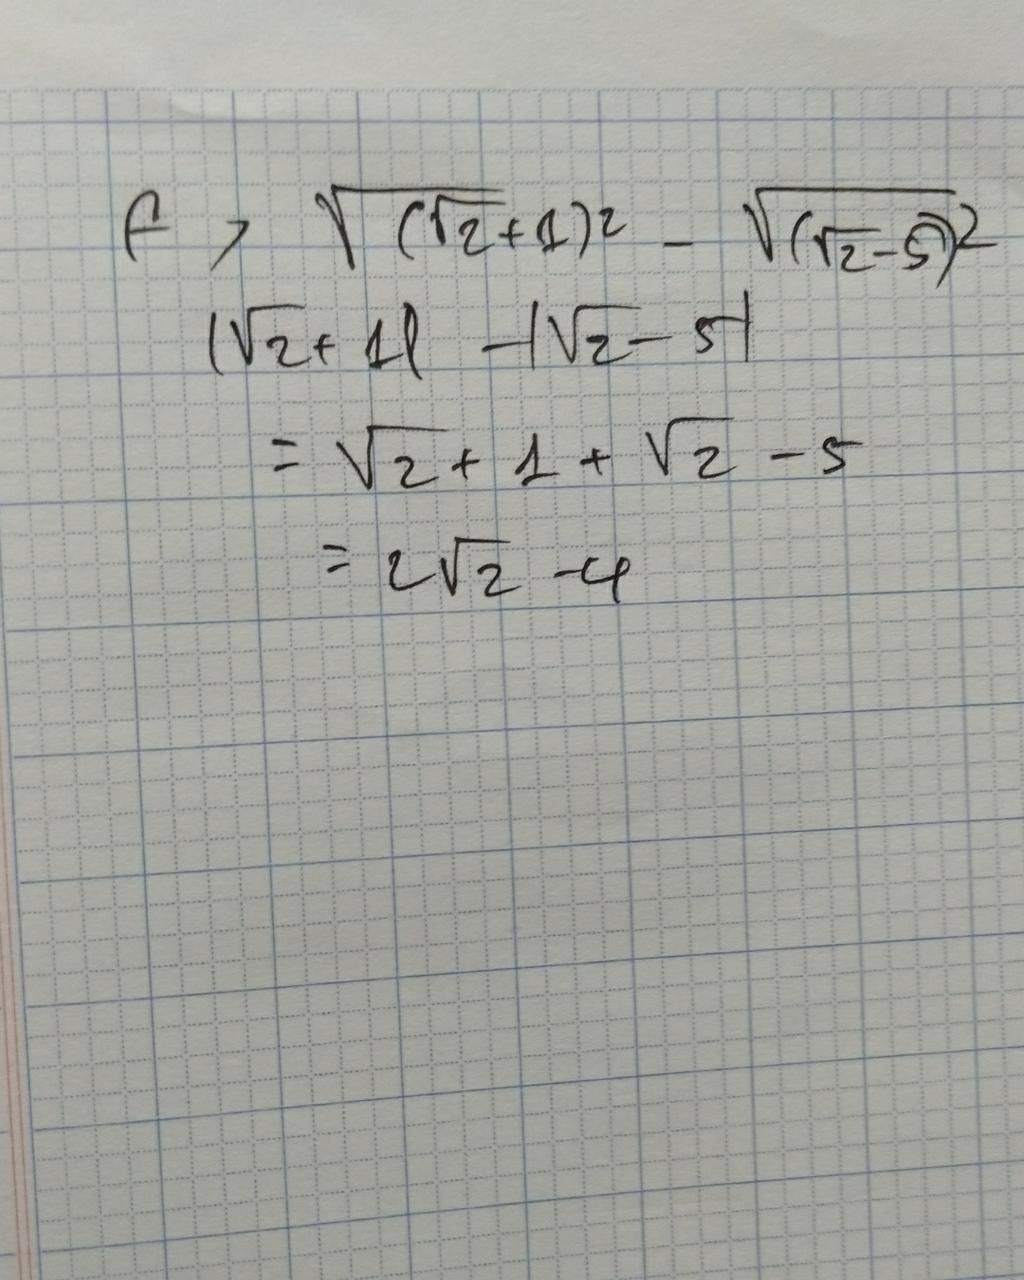 A > √(√2+1)² - √(√2-5)²
|√2+ 1| -|√2- 5|
= √2+ 1 + √2 - 5
= 2√2 -4